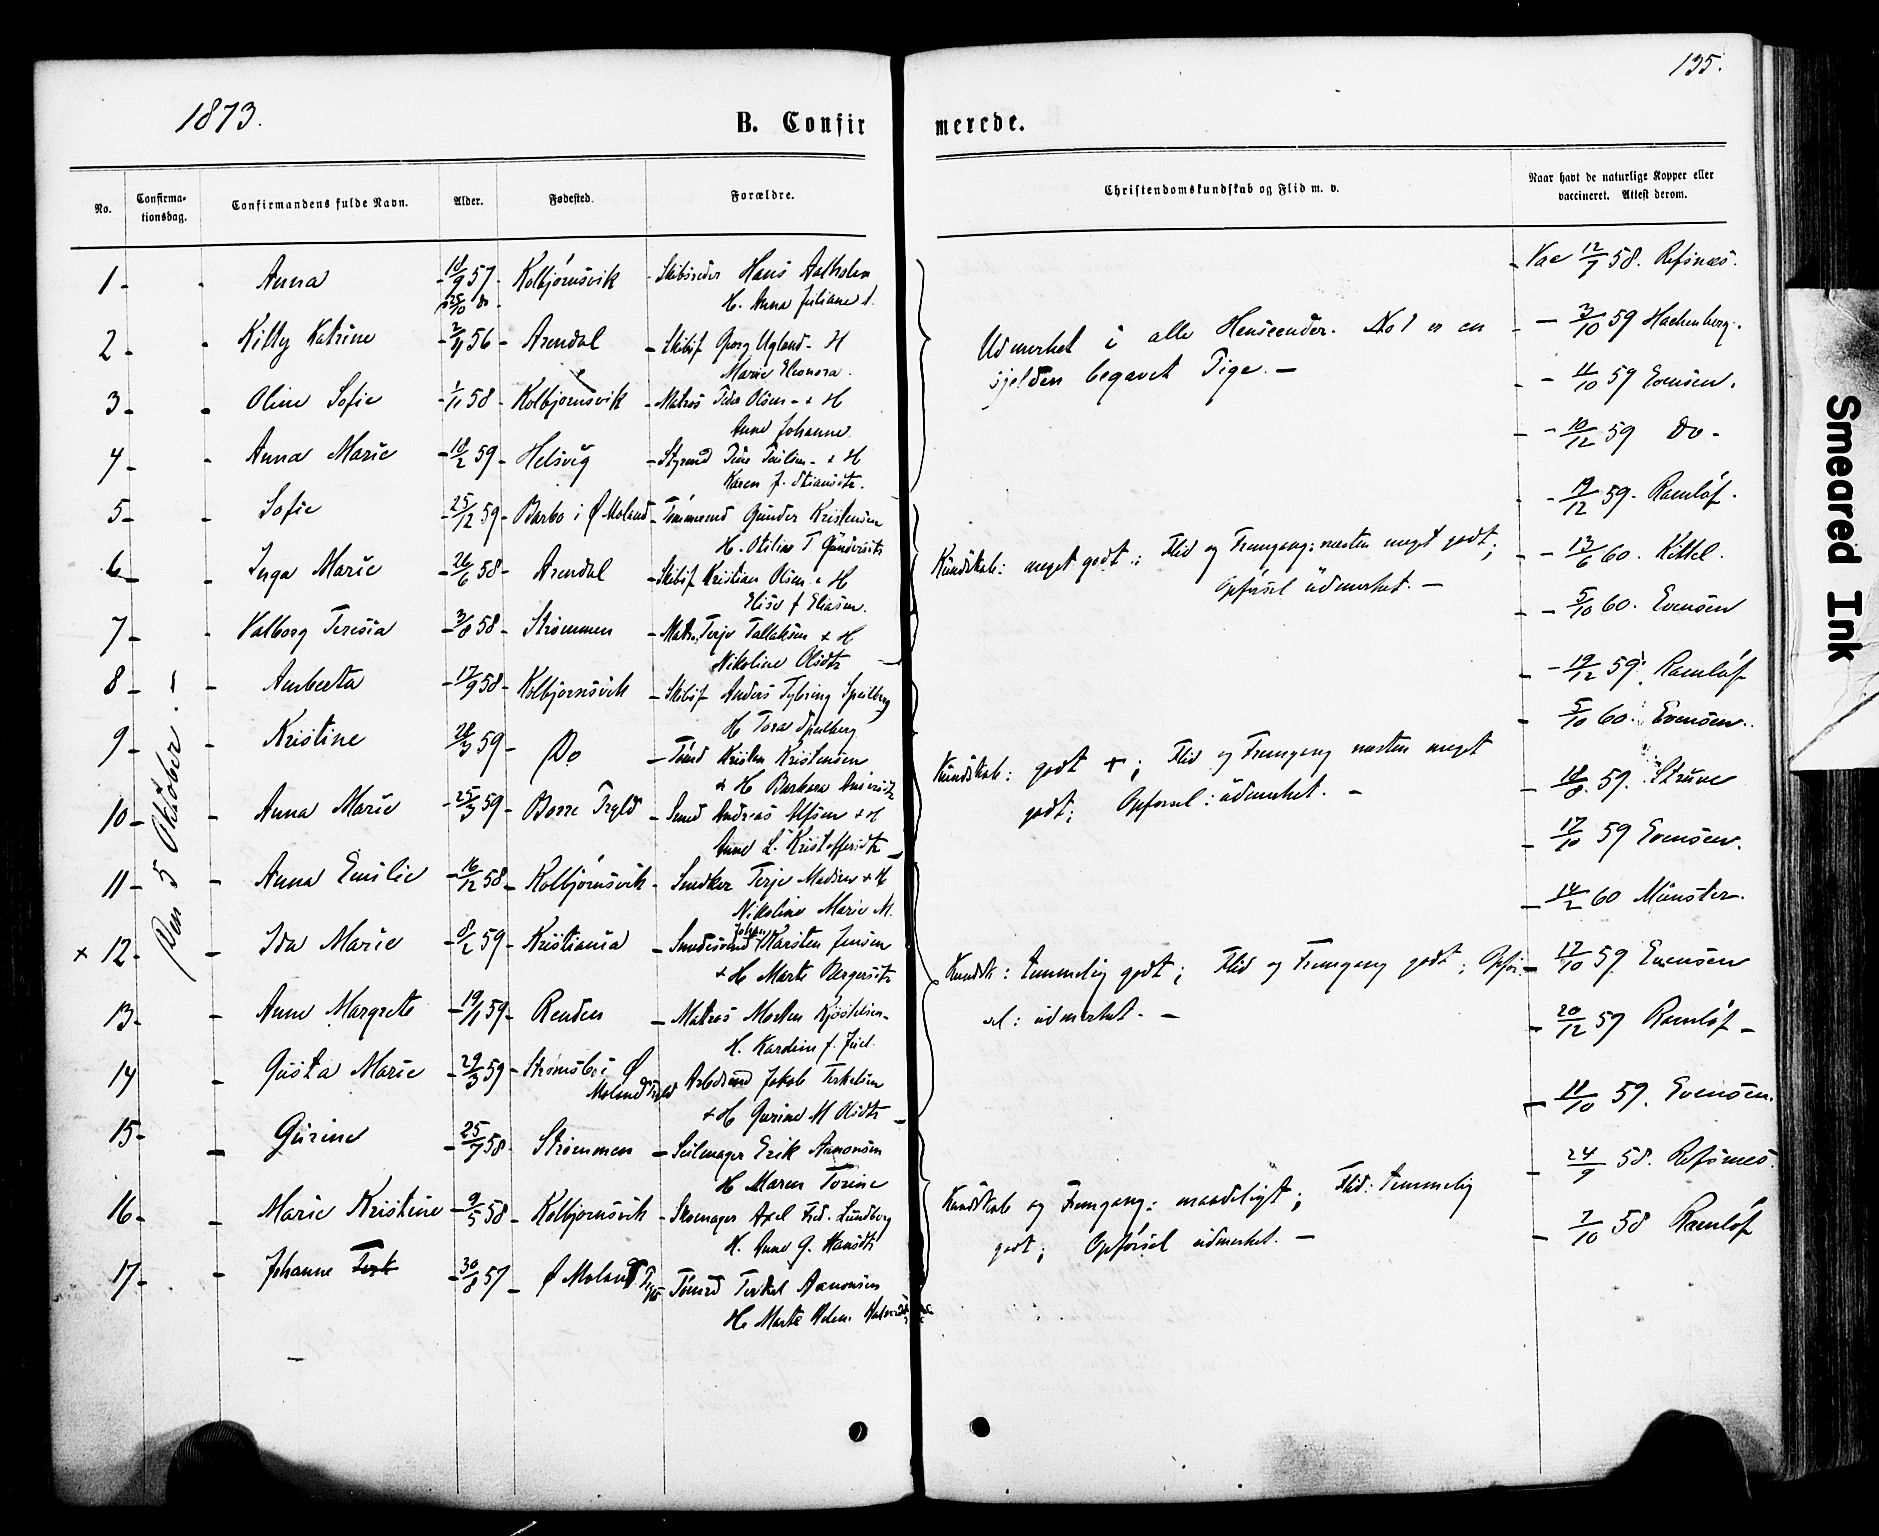 135.
1873.
B. Confirmerede.
No. Confirmationsdag. Confirmandens fulde Navn. Alder. Fødested. Forældre. Christendomskundskab og Flid m. v. Naar havt de naturlige Kopper eller vaccineret. Attest derom.
Den 5 Oktober.
1 - Anna - 18/9 57 - Kolbjørnsvik - Skibsreder Hans
H. Anna Juliane
2 - Kitty Katrine - 56 - Arendal - Skibsf Georg Ugland - H
Marie Eleonora.
3 - Oline Sofie - 58 - Kolbjørnsvik - Matros Olsen - + H
Anne Johanne
4 - Anna Marie - 18/2 59 - Helsvig - Styrmd - + H
Karen J.
5 - Sofie - 25/12 59 - Barbo i Ø Moland - Tømmermd Gunder Kristensen
H. Otilia T Gundersdtr
6 - Inga Marie - 26/6 58 - Arendal - Skibsf Kristian Olsen + H
Elise f Eliasen.
7 - Valborg Teresia - 3/8 58 - Strømmen - Matr. Terje Tallaksen + H
Nikoline Olsdtr
8 - Amberta - 17/9 58 - Kolbjørnsvik - Skibsf Anders Tybring Speilberg
H Tora Speilberg
9 - Kristine - 28/3 59 - Do - Tømd Kristen Kristensen
+ H Barbara
10 - Anna Marie - 25/3 59 - Borre Prgld - Smed Andreas Alfsen + H
Anne L. Kristoffersdtr
11 - Anna Emilie - 16/12 58 - Kolbjørnsvik - Snedker Terje Madsen + H
Nikoline Marie M.
× 12 - Ida Marie - 8/2 59 - Kristiania - Johan Karsten Jensen
+ H. Marte Bergersdtr
13 - Anne Margrete - 19/1 59 - Revden - Matros Morten
H. Karoline f. Juel.
14 - Gusta Marie - 29/3 59 - Strømsboe Ø Moland Prgld Arbdsmd Jakob Terkelsen
+ H Gurine M Olsdtr
15 - Gurine - 25/7 58 - Strømmen - Seilmager Erik Aanonsen
H Maren Torine
16 - Marie Kristine - 9/5 58 - Kolbjørnsvik - Skomager Axel Fred. Lundberg
H. Anne G. Hansdtr
17 - Johanne - 30/8 57 - Ø Moland Tømrd Terkel Aanonsen
H. Marte Helene
Udmerket i alle Henseender. No 1 er en
sjelden begavet Pige. -
Kundskab: meget godt.; Flid og Fremgang: næsten meget godt;
Opførsel udmerket. -
Kundskab: godt +; Flid og Fremgang næsten meget
godt; Opførsel: udmerket. -
Kundsk: temmelig godt; Flid og Fremgang godt; Opfør-
sel: udmerket. -
Kundskab og Fremgang: maadeligt; Flid: temmelig
godt; Opførsel udmerket. -
- Vac 12/7 58. Refsnæs.
- 3/10 59 Hachenberg.
- 11/10 59 Evensen.
- 10/12 59 Do -
- 19/12 59. Ramløf.
- 13/6 60. Kittel.
- 5/10 60. Evensen
- 19/12 59. Ramløf
- 5/10 60. Evensen.
- 18/8 59. Struve
- 17/10 59 Evensen.
- 14/2 60 Münster.
- 17/10 59 Evensen
- 20/12 59 Ramløf -
- 11/10 59. Evensen.
- 24/9 58. Refsnæs.
- 7/10 58 Ramløf
Smeared Ink